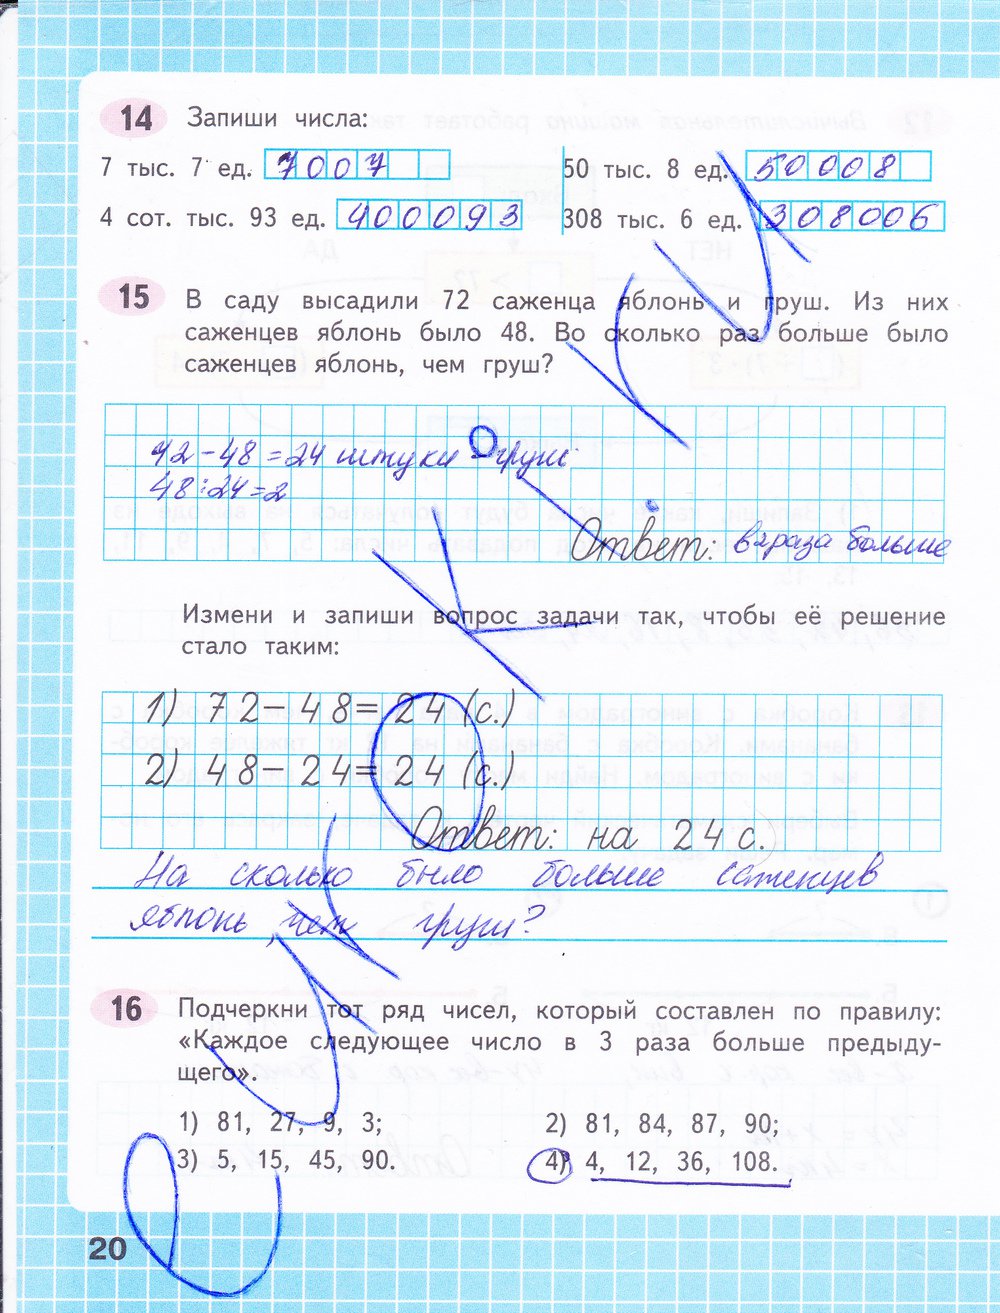 14 Запиши числа:
7 тыс. 7 ед. 7007 50 тыс. 8 ед. 50008
4 сот. тыс. 93 ед. 400093 308 тыс. 6 ед. 308006
15 В саду высадили 72 саженца яблонь и груш. Из них
саженцев яблонь было 48. Во сколько раз больше было
саженцев яблонь, чем груш?
72-48=24 штуки груш
48:24=2
Ответ: в 2 раза больше
Измени и запиши вопрос задачи так, чтобы её решение
стало таким:
1) 72-48=24 (с.)
2) 48-24=24 (с.)
Ответ: на 24 с.
На сколько было больше саженцев
яблонь, чем груш?
16 Подчеркни тот ряд чисел, который составлен по правилу:
«Каждое следующее число в 3 раза больше предыду-
щего».
1) 81, 27, 9, 3; 2) 81, 84, 87, 90;
3) 5, 15, 45, 90. 4) 4, 12, 36, 108.
20